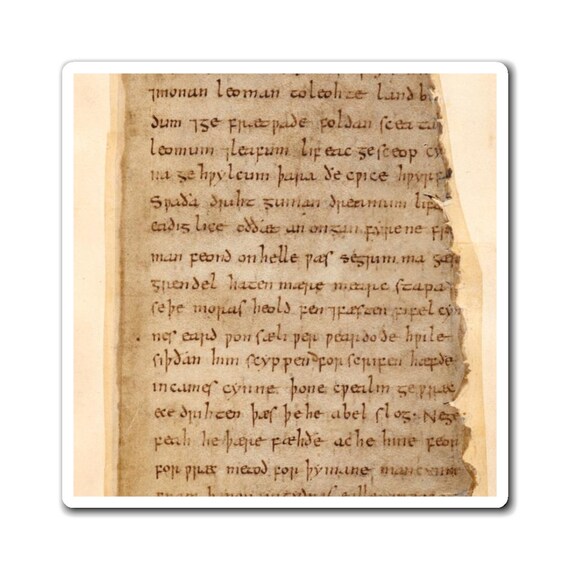 ⁊monan leoman to leohte land b
dum ⁊ge frætƿade foldan sceata
leomum ⁊leafum lif eac ge sceop cy
na ge hƿylcum þara ðe cƿice hƿyrf
Sƿa ða driht guman dreamum lifd
eadig lice oððæt an ongan fyrene fre
man feond on helle ƿæs se grim ma gæ
grendel haten mære mearc stapa
se þe moras heold fen ⁊fæsten fifel cyn
nes eard ƿon sæli ƿer ƿeardode hƿile
siþðan him scyppend for scrifen hæfde
in caines cynne þone cƿealm ge ƿræc
ece drihten þæs þe he abel slog· Ne ge
feah he þære fæhðe ac he hine feor
for ƿræc metod for þy mane man cynne